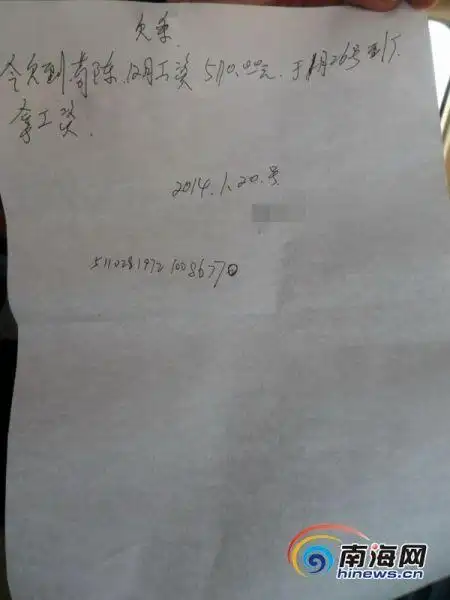 欠条.
今欠到 陈 12月工资 5110.00元. 于1月26号到厂
拿工资.
2014.1.20.号
南海网
hinews.cn